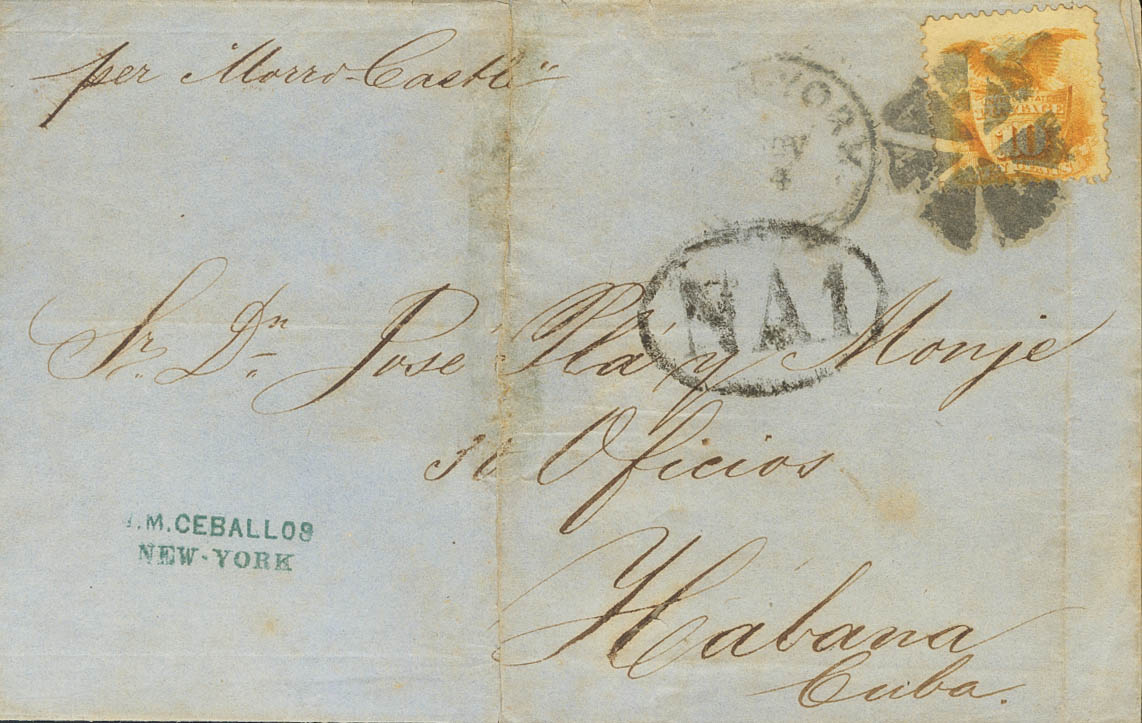 per Morro-Castle
YORK
NOV
4
10
NA1
Sr. Dn. José Plá y Monje
Oficios
Habana
Cuba.
.M.CEBALLOS
NEW-YORK